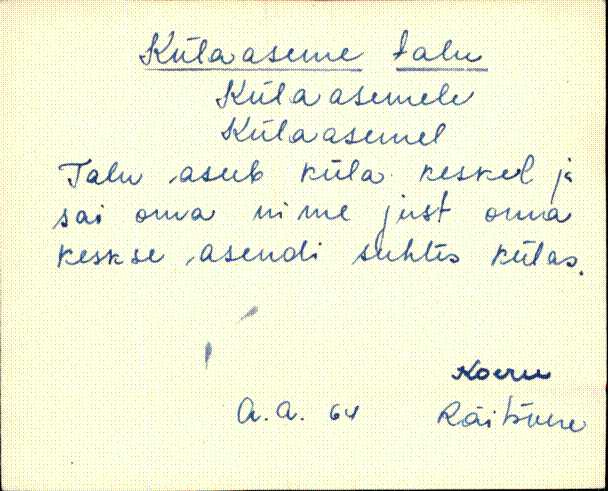 Külaaseme talu
Külaasemele
Külaasemel
Talu asub küla keskel ja
sai oma nime just oma
keskse asendi suhtes külas.
Koeru
A. A. 64 Räitsvere